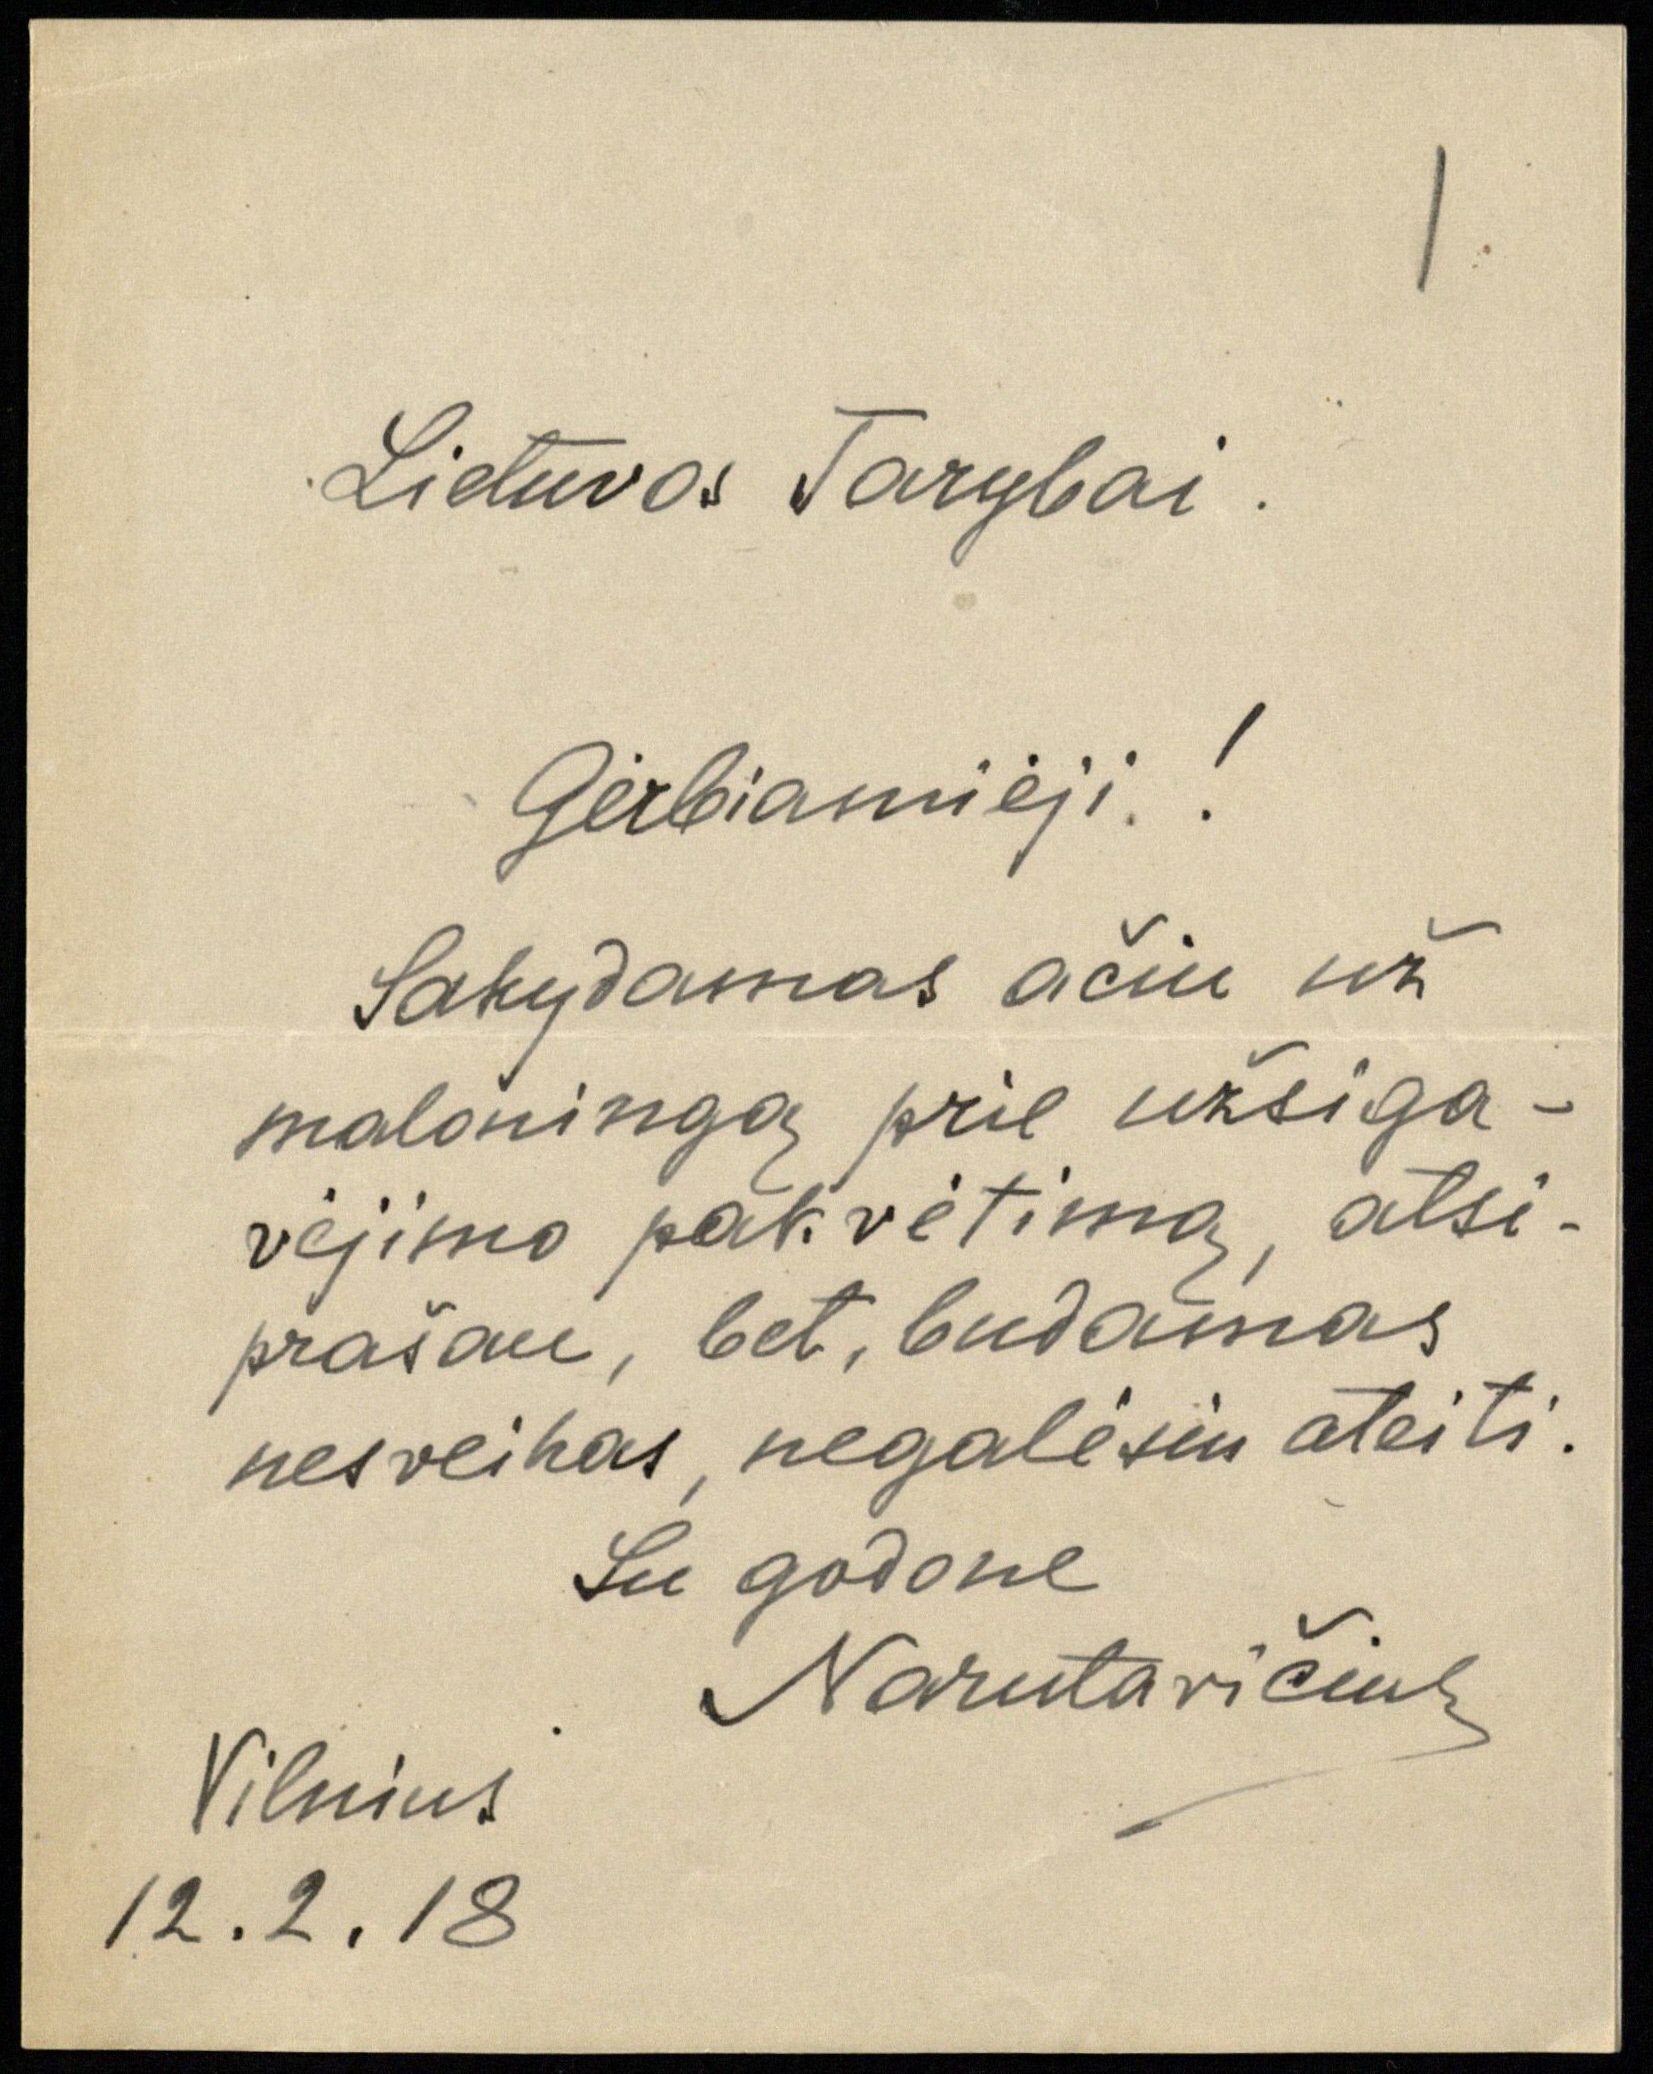 1
Lietuvos Tarybai.
Gėrbiamiėji!
Sakydamas ačiu už
maloningą prie užsiga-
vėjimo pakvėtimą, atsi-
prašau, bet, budamas
nesveikas, negalėsiu ateiti.
Su godone
Narutavičius
Vilnius
12.2.18